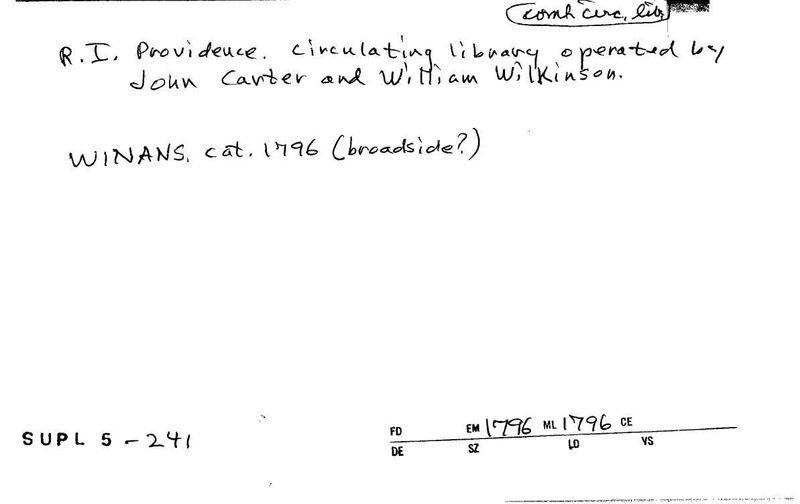 comh circ. lib
R.I. Providence. circulating library operated by
John Carter and William Wilkinson.
WINANS. cat. 1796 (broadside?)
SUPL 5 - 241
FD EM 1796 ML 1796 CE
DE SZ LD VS